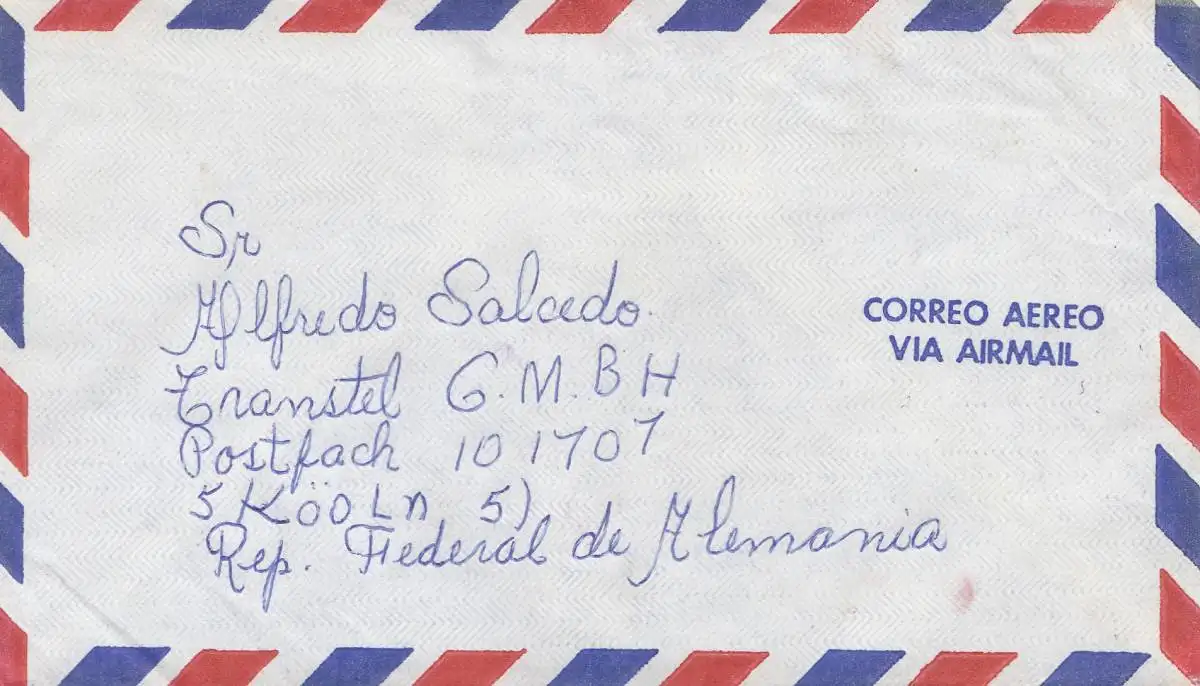 Sr
Alfredo Salcedo.
Transtel G.M.B H
Postfach 10 1707
5 KöoLn 5)
Rep. Federal de Alemania
CORREO AEREO
VIA AIRMAIL